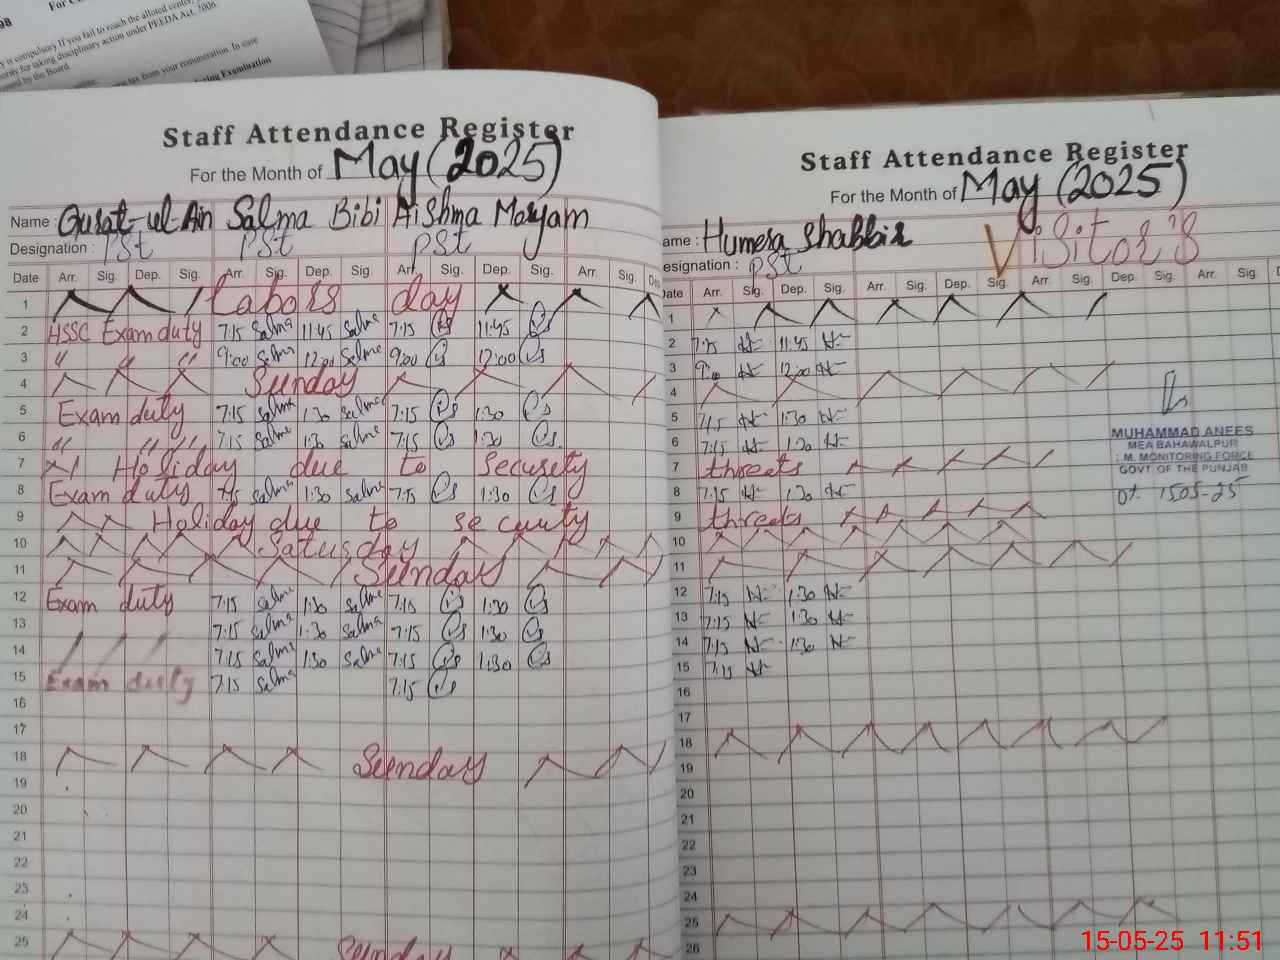 98
For C
y is compulsory If you fail to reach the alloted center,
ority for taking disciplinary action under PEEDA Act, 2006.
ued by the Board.
tax from your remuneration. In case
ring Examination
Staff Attendance Register
For the Month of May (2025)
Name : Qurat-ul-Ain Salma Bibi Aishma Maryam
Designation : PSt PSt PSt
Date Arr. Sig. Dep. Sig. Arr. Sig. Dep. Sig. Arr. Sig. Dep. Sig. Arr. Sig. De
1 Labors day
2 HSSC Exam duty 7:15 Salma 11:45 Salma 7:15 11:45
3 〃 〃 9:00 Salma 12:00 Salma 9:00 12:00
4 Sunday
5 Exam duty 7:15 Salma 1:30 Salma 7:15 1:30
6 〃 〃 〃 7:15 Salma 1:30 Salma 7:15 1:30
7 Holiday due to Security
8 Exam duty 7:15 Salma 1:30 Salma 7:15 1:30
9 Holiday due to security
10 Saturday
11 Sunday
12 Exam duty 7:15 Salma 1:30 Salma 7:15 1:30
13 7:15 Salma 1:30 Salma 7:15 1:30
14 7:15 Salma 1:30 Salma 7:15 1:30
15 Exam duty 7:15 Salma 7:15
16
17
18 Sunday
19
20
21
22
23
24
25 Sunday
Staff Attendance Register
For the Month of May (2025)
ame : Humera Shabbir Visitor's
esignation : PSt
Date Arr. Sig. Dep. Sig. Arr. Sig. Dep. Sig. Arr. Sig. Dep. Sig. Arr. Sig. D
1
2 7:15 11:45
3 9:00 12:00
4
5 7:15 1:30
6 7:15 1:30
7 threats
8 7:15 1:30
9 threats
10
11
12 7:15 1:30
13 7:15 1:30
14 7:15 1:30
15 7:15
16
17
18
19
20
21
22
23
24
25
26
MUHAMMAD ANEES
MEA BAHAWALPUR
: M. MONITORING FORCE
GOVT OF THE PUNJAB
Dt. 1505-25
15-05-25 11:51